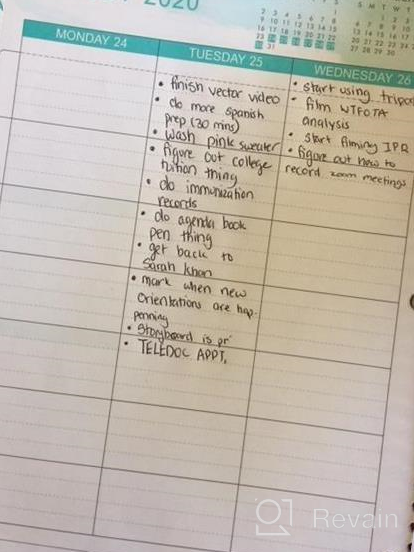 2020
S M T W
MONDAY 24
TUESDAY 25
WEDNESDAY 26
• finish vector video
• do more spanish
prep (30 mins)
• wash pink sweater
• figure out college
tuition thing
• do immunization
records
• do agenda book
pen thing
• get back to
Sarah Khan
• mark when new
orientations are hap-
penning
• Storyboard is pr
• TELEDOC APPT.
• start using tripo
• film WTFOTA
analysis
• start filming IPR
• figure out how to
record zoom meetings
Revain